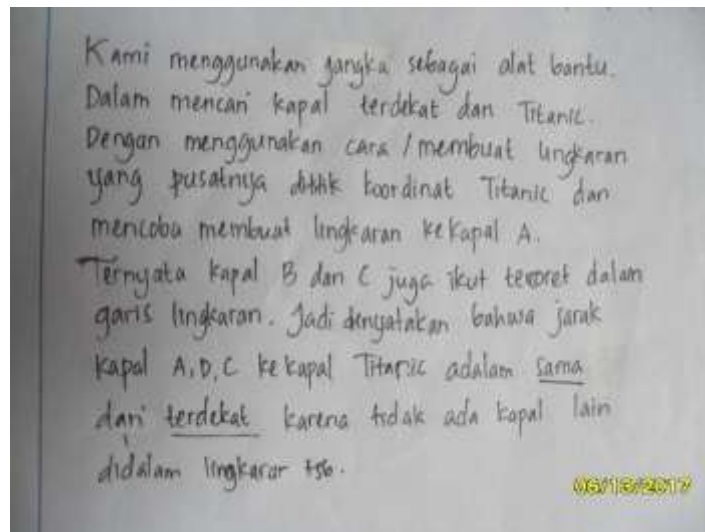 Kami menggunakan jangka sebagai alat bantu.
Dalam mencari kapal terdekat dari Titanic.
Dengan menggunakan cara / membuat lingkaran
yang pusatnya dititik koordinat Titanic dan
mencoba membuat lingkaran ke kapal A.
Ternyata kapal B dan C juga ikut tercoret dalam
garis lingkaran. Jadi dinyatakan bahwa jarak
kapal A, D, C ke kapal Titanic adalam sama
dan terdekat karena tidak ada kapal lain
didalam lingkaran tsb.
06/13/2017